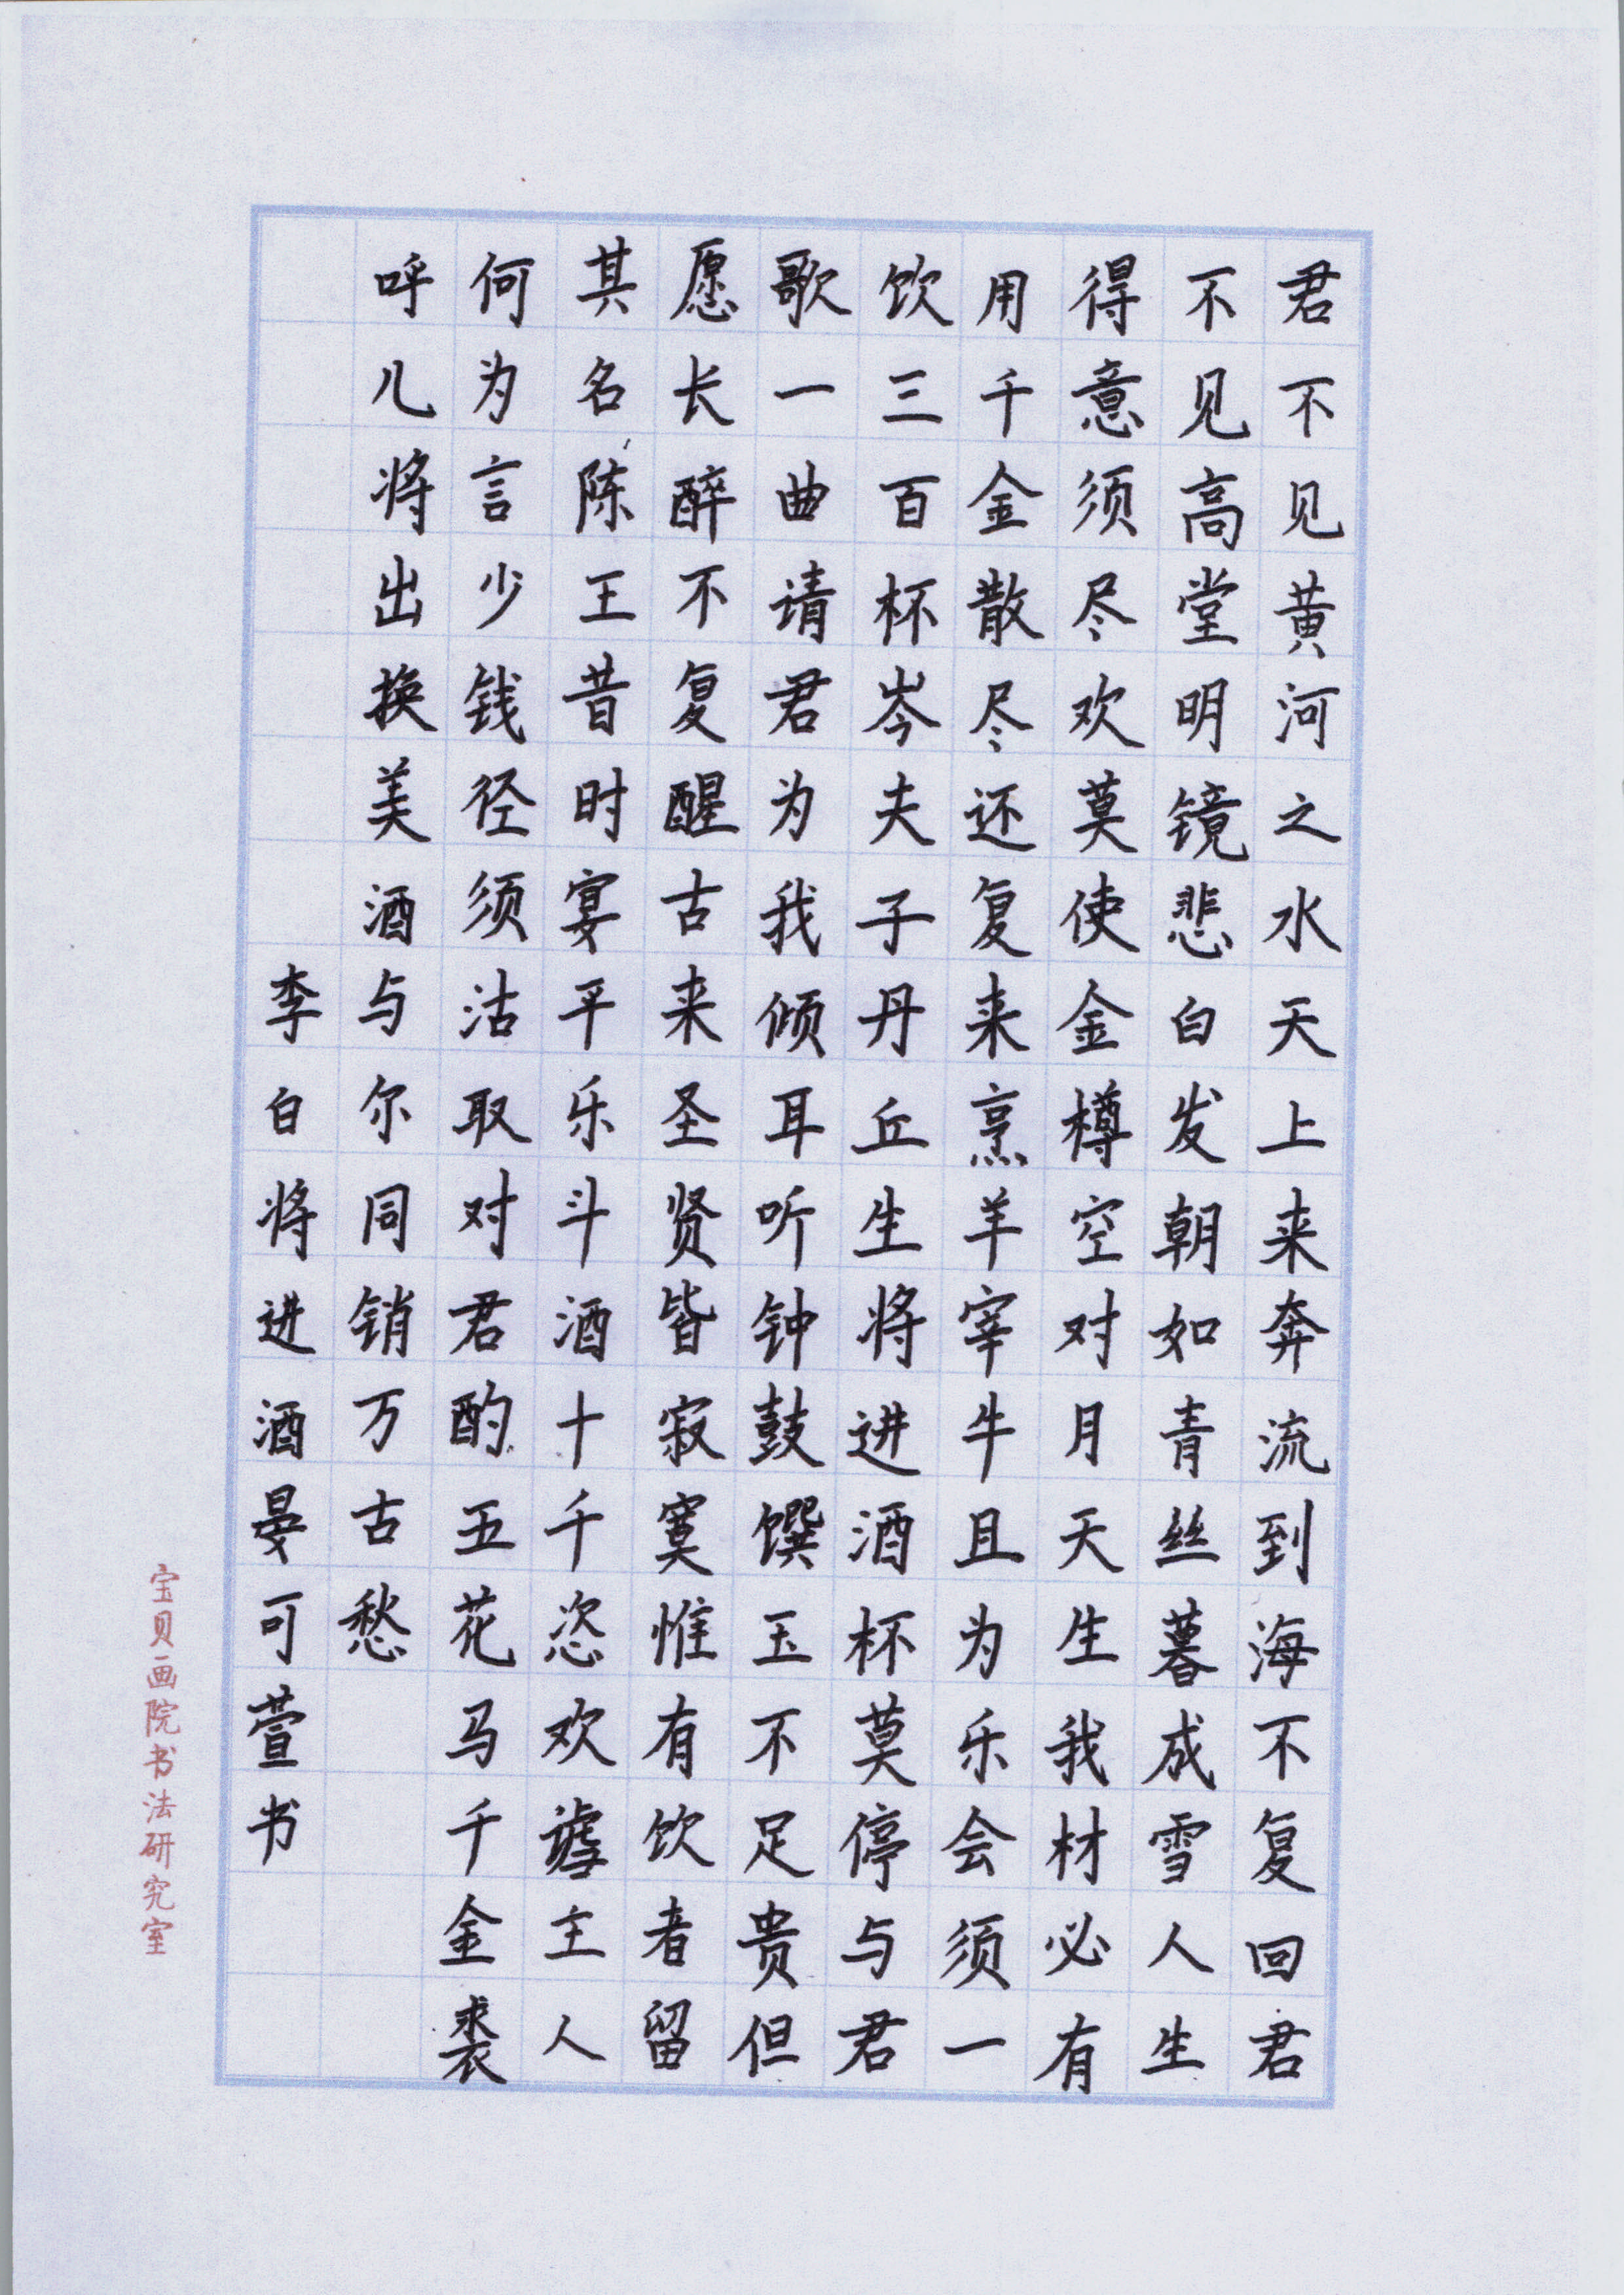 君不见黄河之水天上来奔流到海不复回君
不见高堂明镜悲白发朝如青丝暮成雪人生
得意须尽欢莫使金樽空对月天生我材必有
用千金散尽还复来烹羊宰牛且为乐会须一
饮三百杯岑夫子丹丘生将进酒杯莫停与君
歌一曲请君为我倾耳听钟鼓馔玉不足贵但
愿长醉不复醒古来圣贤皆寂寞惟有饮者留
其名陈王昔时宴平乐斗酒十千恣欢谑主人
何为言少钱径须沽取对君酌五花马千金裘
呼儿将出换美酒与尔同销万古愁
李白将进酒晏可萱书
宝贝画院书法研究室